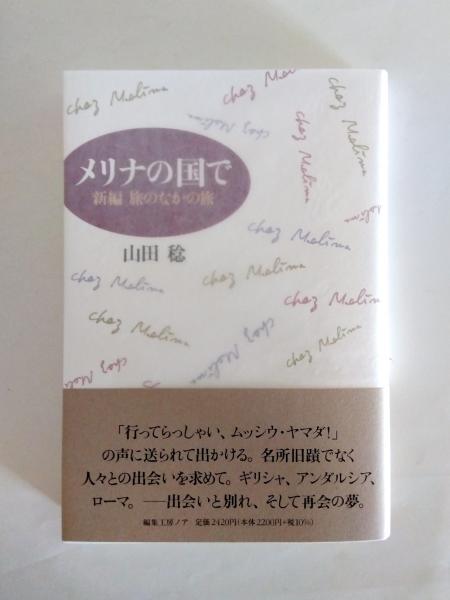 chez Melina
chez Mel
chez Melina
chez Melina
chez Melina
メリナの国で
新編 旅のなかの旅
山田 稔
chez Melina
chez Melina
chez Melina
chez Melina
chez Melina
chez Melina
chez Melina
chez Melina
「行ってらっしゃい、ムッシウ・ヤマダ!」
の声に送られて出かける。名所旧蹟でなく
人々との出会いを求めて。ギリシャ、アンダルシア、
ローマ。――出会いと別れ、そして再会の夢。
編集工房ノア 定価2420円(本体2200円+税10%)